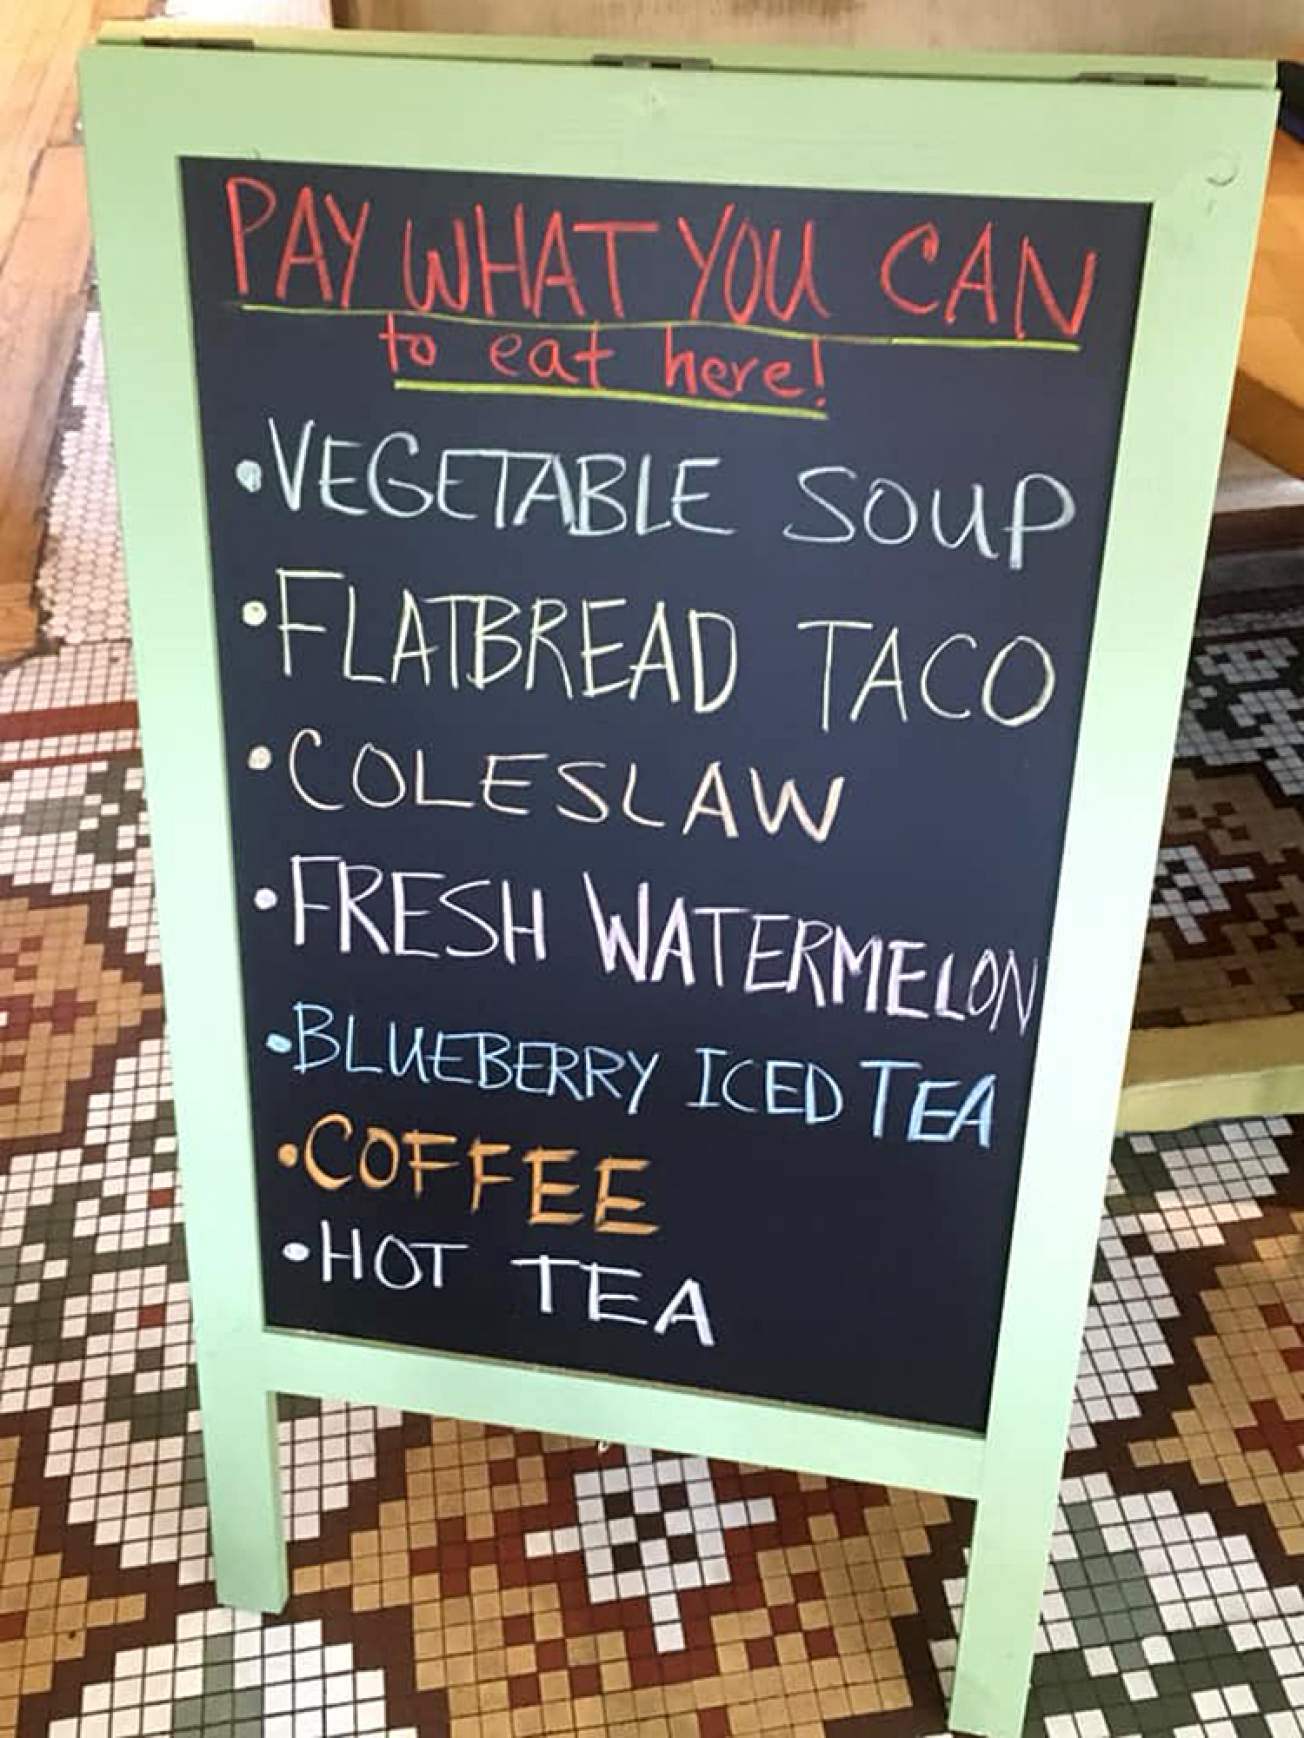 PAY WHAT YOU CAN
to eat here!
•VEGETABLE SOUP
•FLATBREAD TACO
•COLESLAW
•FRESH WATERMELON
•BLUEBERRY ICED TEA
•COFFEE
•HOT TEA